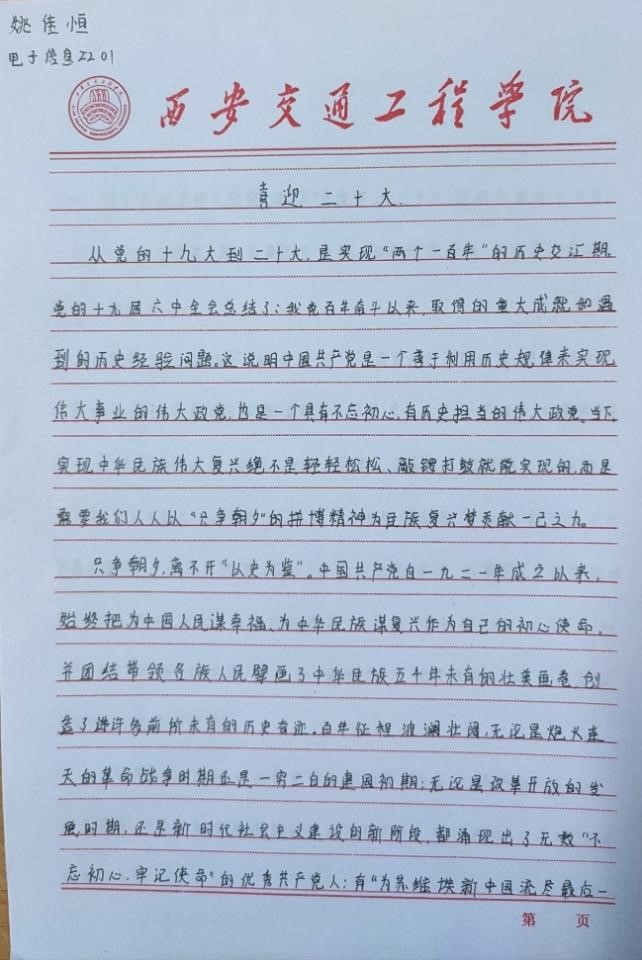 姚佳恒
电子信息2201
西安交通工程学院
喜迎二十大.
从党的十九大到二十大,是实现“两个一百年”的历史交汇期.
党的十九届六中全会总结了:我党百年奋斗以来,取得的重大成就和遇
到的历史经验问题。这说明中国共产党是一个善于利用历史规律来实现
伟大事业的伟大政党,也是一个具有不忘初心,有历史担当的伟大政党。当下,
实现中华民族伟大复兴绝不是轻轻松松、敲锣打鼓就能实现的,而是
需要我们人人以“只争朝夕”的拼博精神为民族复兴梦贡献一己之力。
只争朝夕,离不开“以史为鉴”。中国共产党自一九二一年成立以来,
始终把为中国人民谋幸福、为中华民族谋复兴作为自己的初心使命,
并团结带领各族人民擘画了中华民族五千年未有的壮美画卷,创
造了许许多前所未有的历史奇迹。百年征程波澜壮阔,无论是炮火连
天的革命战争时期还是一穷二白的建国初期;无论是改革开放的发
展时期,还是新时代社会主义建设的新阶段,都涌现出了无数“不
忘初心,牢记使命”的优秀共产党人;有“为苏维埃新中国流尽最后一
第 页